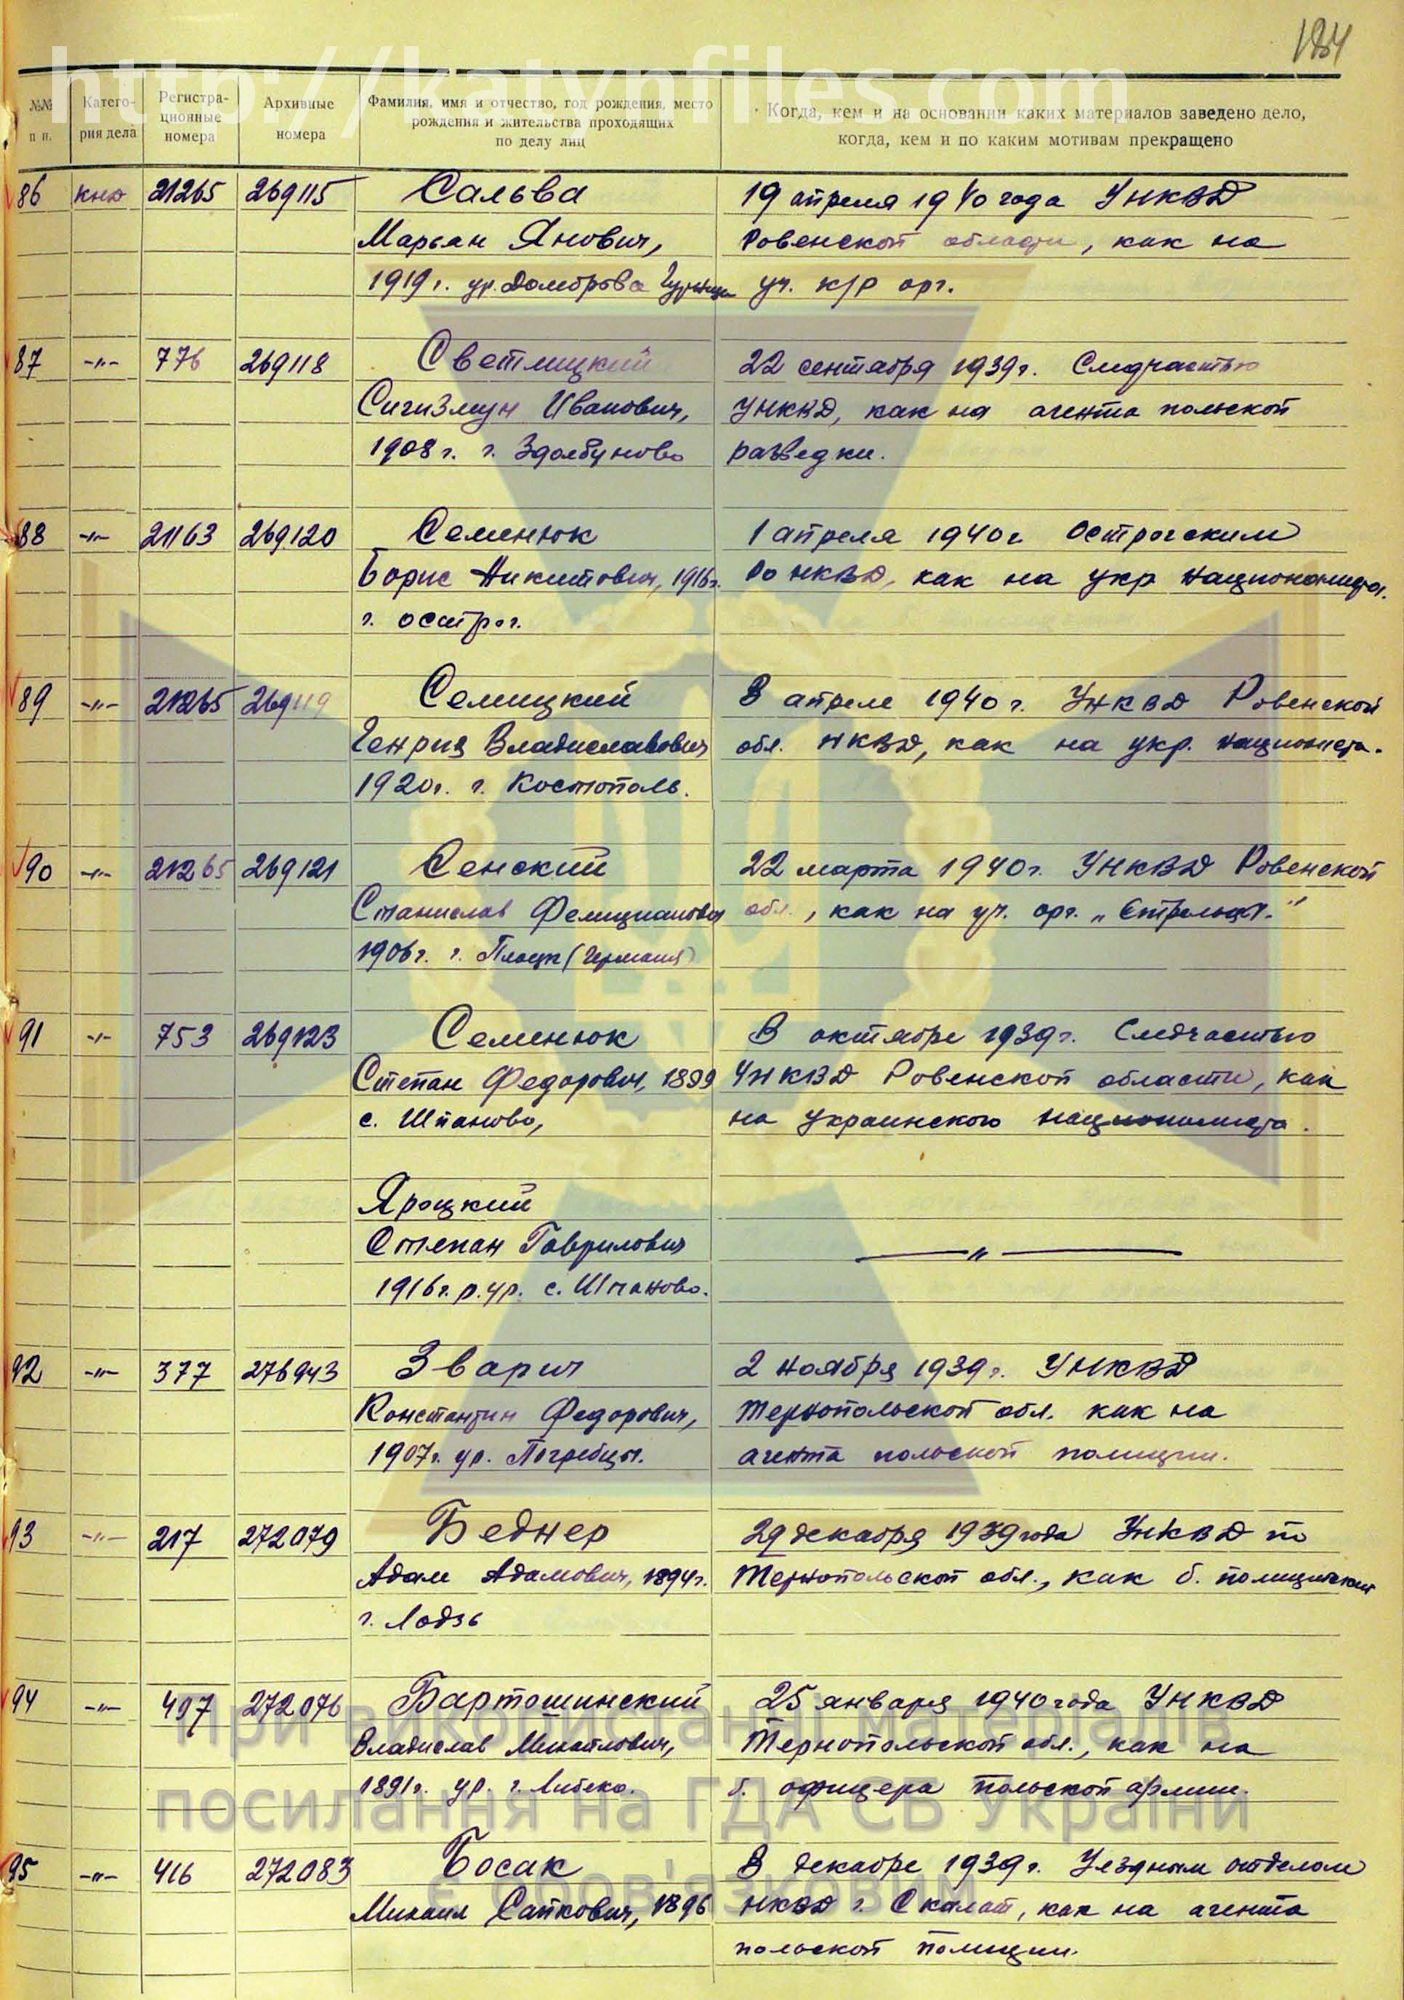 184
http://katynfiles.com
№№ п п.
Катего-
рия дела
Регистра-
ционные
номера
Архивные
номера
Фамилия, имя и отчество, год рождения, место
рождения и жительства проходящих
по делу лиц
Когда, кем и на основании каких материалов заведено дело,
когда, кем и по каким мотивам прекращено
86 21265 269115 Сальва 19 апреля 1940 года УНКВД
Марьян Янович, Ровенской области, как на
1919 г. ур. Домброва уч. к/р орг.
87 -"- 776 269118 Светлицкий 22 сентября 1939 г. Следчастью
Сигизмун Иванович, УНКВД, как на агента польской
1908 г. г. Здолбуново разведки.
88 -"- 21163 269120 Семенюк 1 апреля 1940 г Острогским
Борис Никитович, 1916 г. РО НКВД, как на укр
г. острог.
89 -"- 21265 269119 Семицкий В апреле 1940 г. УНКВД Ровенской
Генрих Владиславович обл. НКВД, как на укр.
1920 г. г. Костополь.
90 -"- 21265 269121 Сенский 22 марта 1940 г. УНКВД Ровенской
Станислав Фелицианович обл., как на уч. орг. „Стрельцы."
1906 г. г. Плоцк (Германия)
91 -"- 753 269123 Семенюк В октябре 1939 г. Следчастью
Степан Федорович, 1899 УНКВД Ровенской области, как
с. Шпаново, на украинского националиста.
Яроцкий
Степан Гаврилович — " —
1916 г. р. ур. с. Шпаново.
92 -"- 377 276943 Зварич 2 ноября 1939 г. УНКВД
Константин Федорович, Тернопольской обл. как на
1907 г. ур. Погребцы. агента польской полиции.
93 -"- 217 272079 Беднер 29 декабря 1939 года УНКВД по
Адам Адамович, 1894 г. Тернопольской обл., как б.
г. Лодзь
94 -"- 497 272076 Бартошинский 25 января 1940 года УНКВД
Владислав Михайлович, Тернопольской обл., как на
1891 г. ур. г. б. офицера польской армии.
95 -"- 416 272083 Босак В декабре 1939 г. Уездным отделом
Михаил 1896 НКВД г. Скалат, как на агента
польской полиции.
При використанні матеріалів
посилання на ГДА СБ України
є обов'язковим